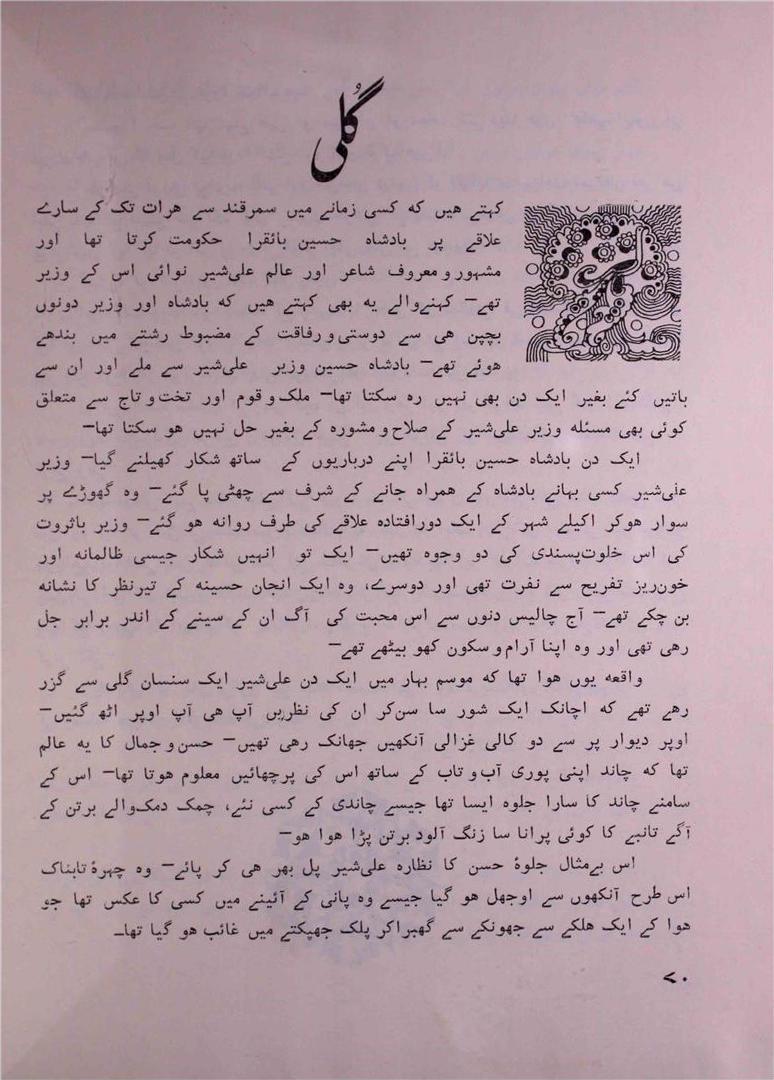 گُلی
کہتے ھیں کہ کسی زمانے میں سمرقند سے ھرات تک کے سارے
علاقے پر بادشاہ حسین بائقرا حکومت کرتا تھا اور
مشہور و معروف شاعر اور عالم علی‌شیر نوائی اس کے وزیر
تھے— کہنےوالے یہ بھی کہتے ھیں کہ بادشاہ اور وزیر دونوں
بچپن ھی سے دوستی و رفاقت کے مضبوط رشتے میں بندھے
ھوئے تھے— بادشاہ حسین وزیر علی‌شیر سے ملے اور ان سے
باتیں کئے بغیر ایک دن بھی نہیں رہ سکتا تھا— ملک و قوم اور تخت و تاج سے متعلق
کوئی بھی مسئلہ وزیر علی‌شیر کے صلاح و مشورہ کے بغیر حل نہیں ھو سکتا تھا—
ایک دن بادشاہ حسین بائقرا اپنے درباریوں کے ساتھ شکار کھیلنے گیا— وزیر
علی‌شیر کسی بہانے بادشاہ کے ھمراہ جانے کے شرف سے چھٹی پا گئے— وہ گھوڑے پر
سوار ھوکر اکیلے شہر کے ایک دورافتادہ علاقے کی طرف روانہ ھو گئے— وزیر باثروت
کی اس خلوت‌پسندی کی دو وجوہ تھیں— ایک تو انہیں شکار جیسی ظالمانہ اور
خوں‌ریز تفریح سے نفرت تھی اور دوسرے، وہ ایک انجان حسینہ کے تیرنظر کا نشانہ
بن چکے تھے— آج چالیس دنوں سے اس محبت کی آگ ان کے سینے کے اندر برابر جل
رھی تھی اور وہ اپنا آرام و سکون کھو بیٹھے تھے—
واقعہ یوں ھوا تھا کہ موسم بہار میں ایک دن علی‌شیر ایک سنسان گلی سے گزر
رھے تھے کہ اچانک ایک شور سا سن‌کر ان کی نظریں آپ ھی آپ اوپر اٹھ گئیں—
اوپر دیوار پر سے دو کالی غزالی آنکھیں جھانک رھی تھیں— حسن و جمال کا یہ عالم
تھا کہ چاند اپنی پوری آب و تاب کے ساتھ اس کی پرچھائیں معلوم ھوتا تھا— اس کے
سامنے چاند کا سارا جلوہ ایسا تھا جیسے چاندی کے کسی نئے، چمک دمک‌والے برتن کے
آگے تانبے کا کوئی پرانا سا زنگ آلود برتن پڑا ھوا ھو—
اس بےمثال جلوۂ حسن کا نظارہ علی‌شیر پل بھر ھی کر پائے— وہ چہرۂ تابناک
اس طرح آنکھوں سے اوجھل ھو گیا جیسے وہ پانی کے آئینے میں کسی کا عکس تھا جو
ھوا کے ایک ھلکے سے جھونکے سے گھبراکر پلک جھپکتے میں غائب ھو گیا تھا—
۷۰